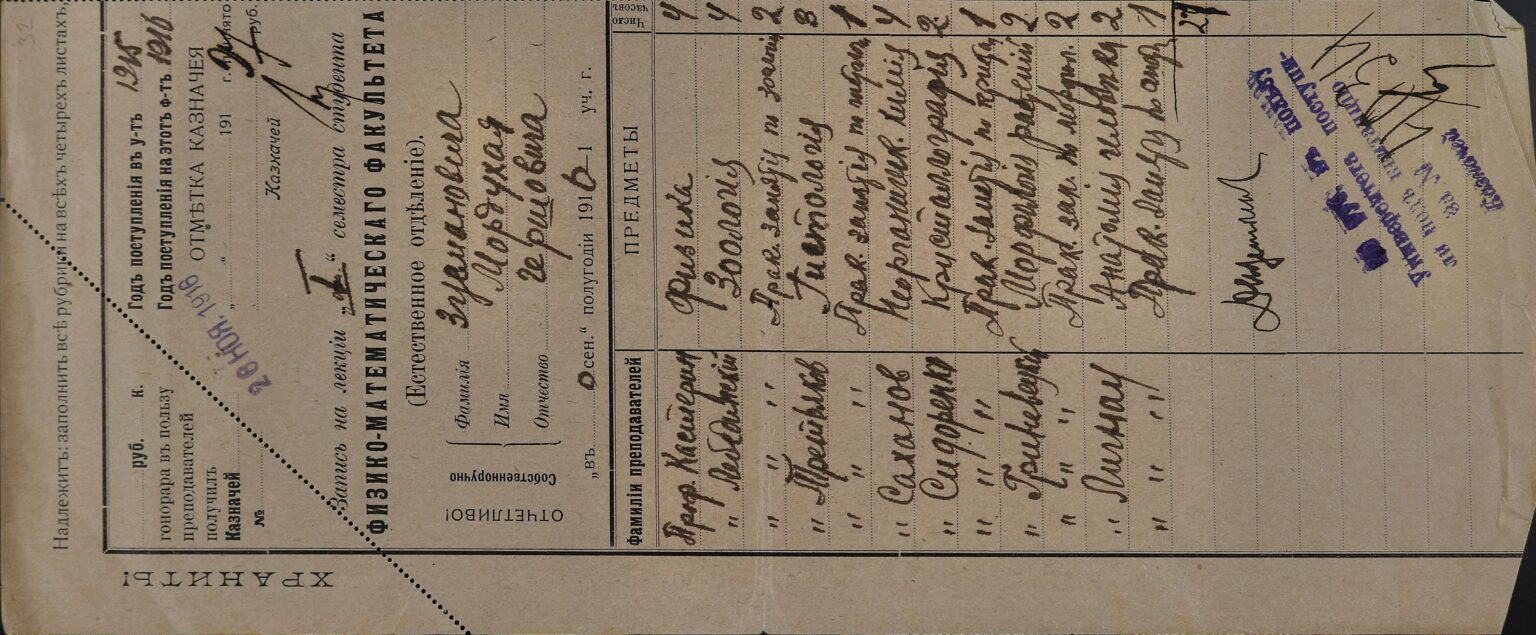 Надлежитъ: заполнить всѣ рубрики на всѣхъ четырехъ листахъ.
ХРАНИТЬ!
руб. к.
гонорара въ пользу
преподавателей
получилъ
Казначей
№
Годъ поступленія въ у-тъ 1915
Годъ поступленія на этотъ ф-тъ 1916
ОТМѢТКА КАЗНАЧЕЯ
„ “ 191 г.
руб.
Казначей
26 НОЯ. 1916
Запись на лекціи „I“ семестра студента
ФИЗИКО-МАТЕМАТИЧЕСКАГО ФАКУЛЬТЕТА
(Естественное отдѣленіе).
ОТЧЕТЛИВО!
Собственноручно
Фамилія Згуманович
Имя Мордухая
Отчество Гершовича
„въ осен.“ полугодіи 1916-1 уч. г.
Фамиліи преподавателей ПРЕДМЕТЫ Число часовъ
Проф. Кастерин Физика 4
„ Лебединскій Зоологія 4
„ „ „ Прак. занятія по зоологіи 2
„ Третьяков Гистологія 3
„ „ „ Прак. занятія по 1
„ Сахановъ Неорганич. химія 4
„ Сидоренко Кристаллографія 2
„ „ „ Прак. занятія по крист. 1
„ Гриневецкій Морфологія растеній 2
„ „ „ Прак. зан. по морфол. 2
„ Лигнау Анатомія человѣка 2
„ „ „ Прак. занят. по анат. 1
27
руб. въ пользу
Университета поступи-
ли подъ квитанцію
за №
Казначей